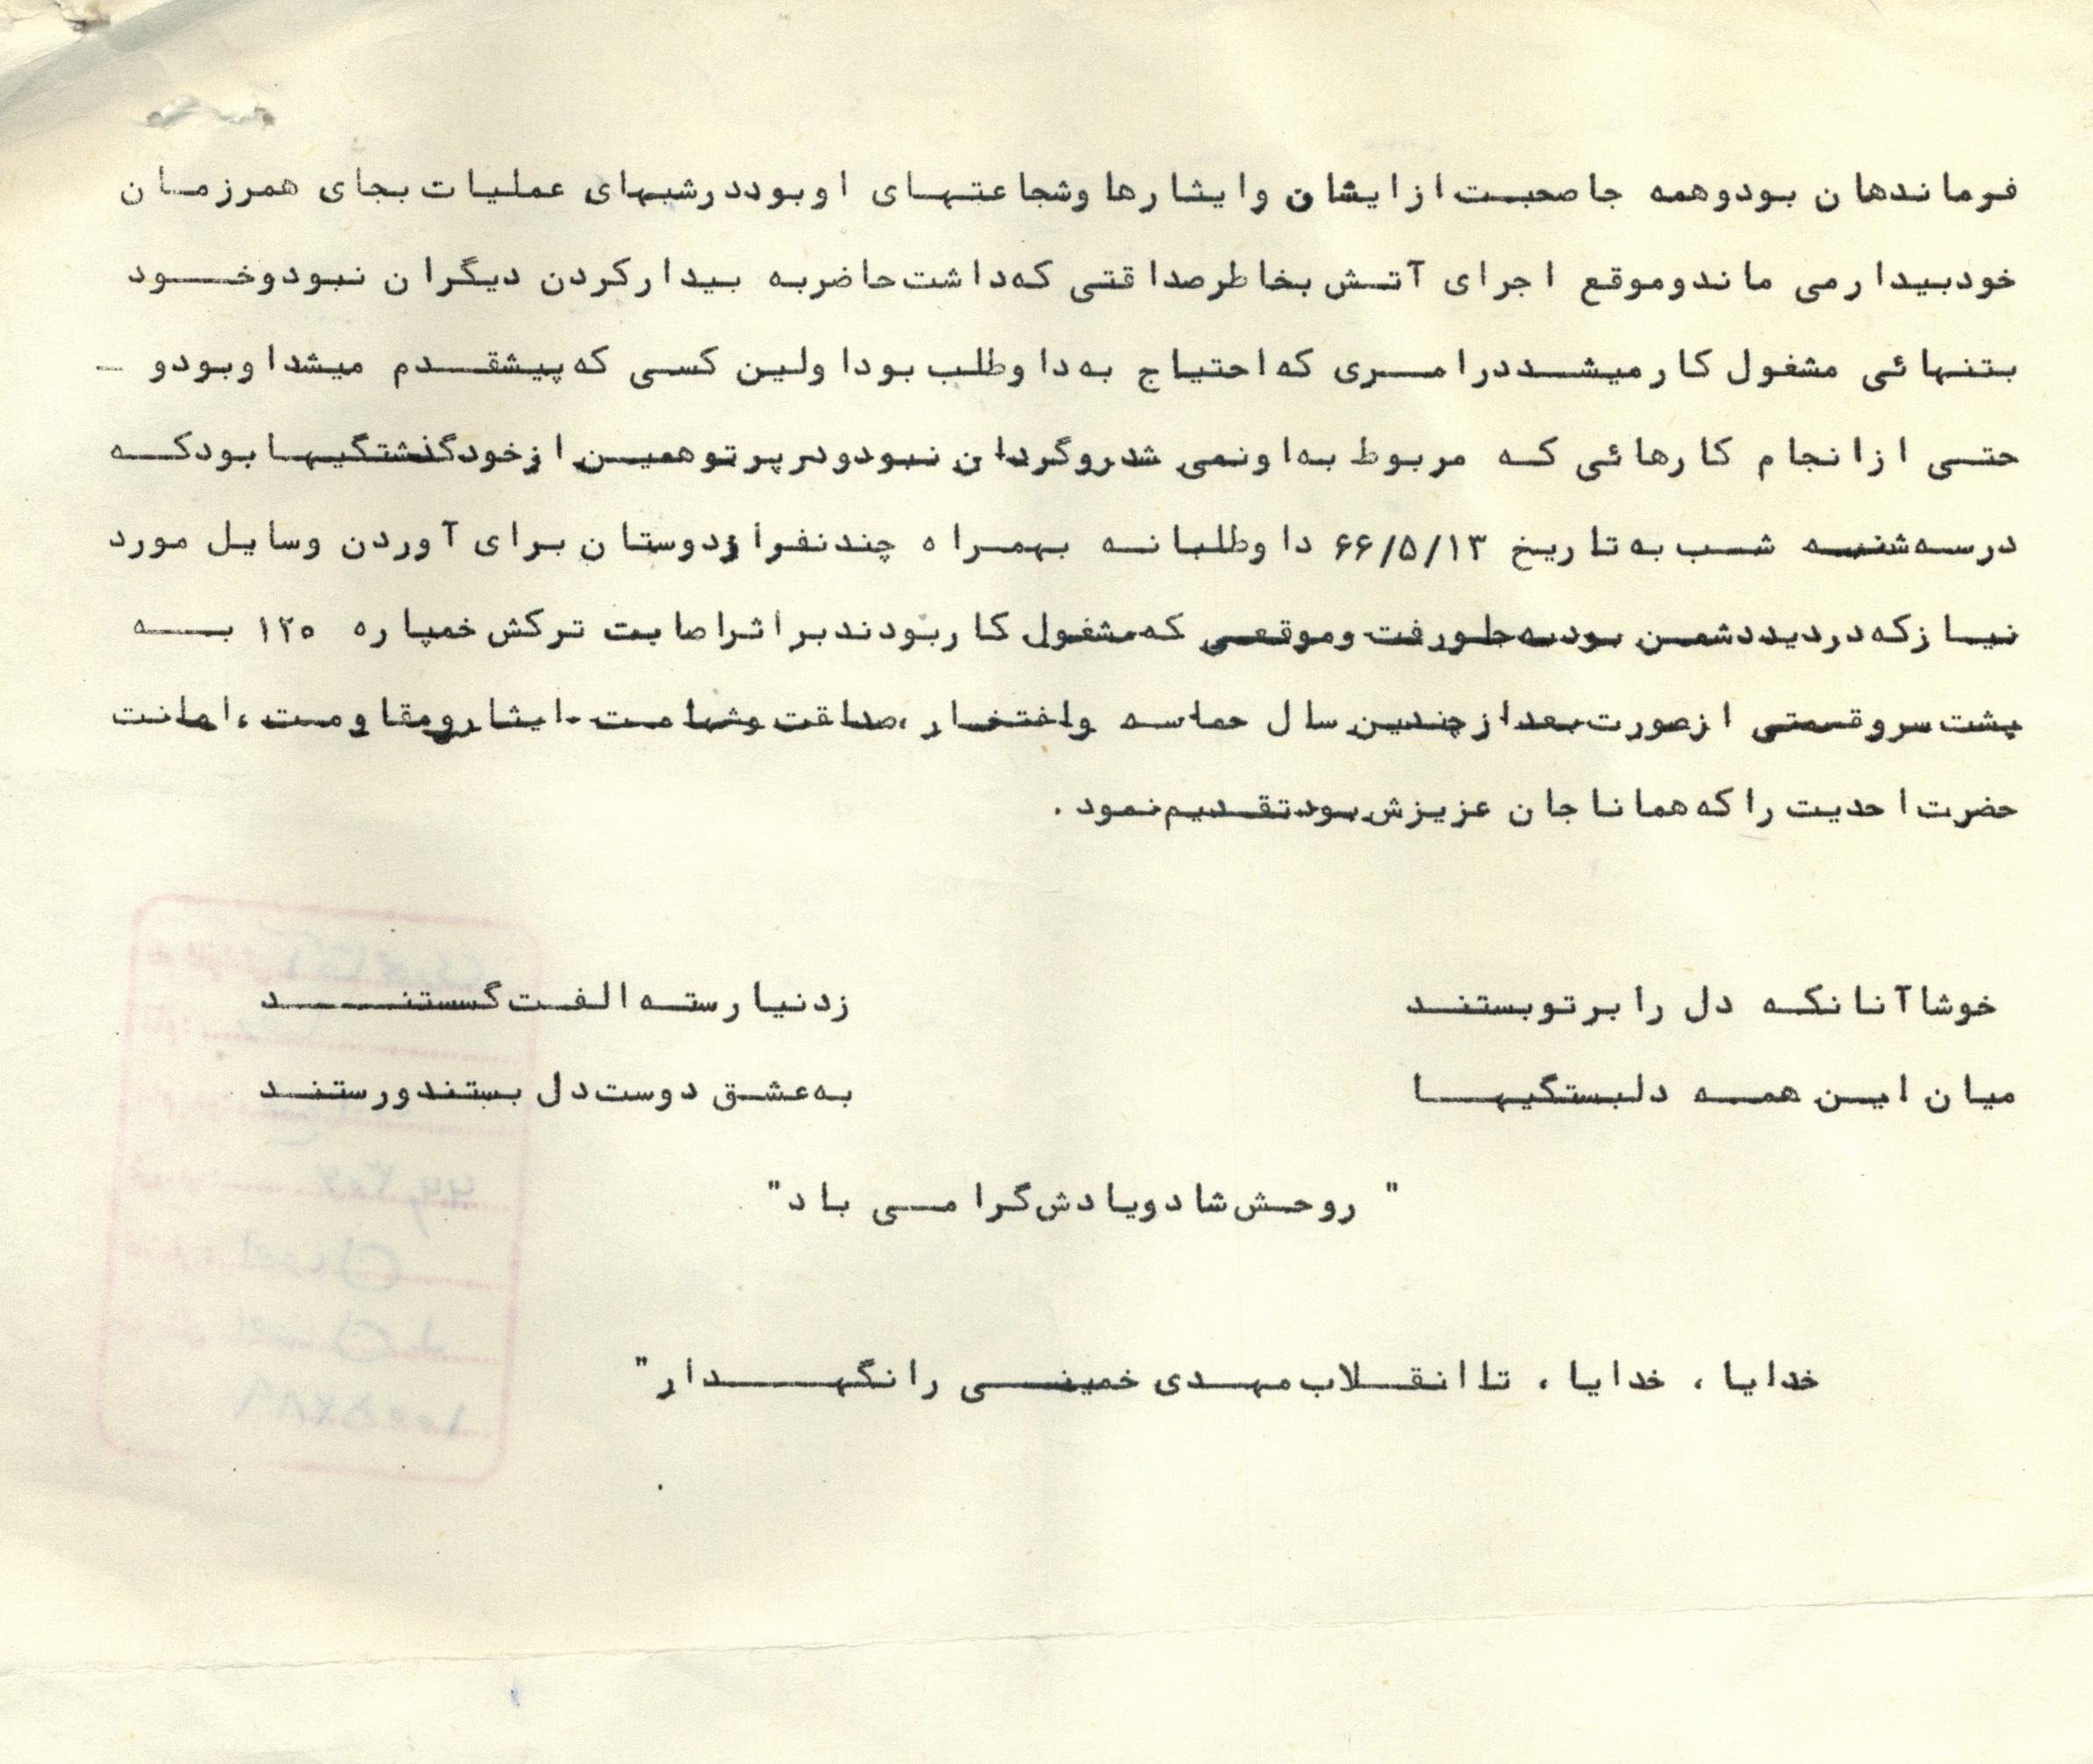 فرماندهان بود و همه جا صحبت از ایشان و ایثارها و شجاعتهای او بود در شبهای عملیات بجای همرزمان
خود بیدار می ماند و موقع اجرای آتش بخاطر صداقتی که داشت حاضر به بیدار کردن دیگران نبود و خود
بتنهائی مشغول کار میشد در امری که احتیاج به داوطلب بود اولین کسی که پیشقدم میشد او بود و -
حتی از انجام کارهائی که مربوط به او نمی شد روگردان نبود و در پرتو همین از خود گذشتگیها بود که
در سه شنبه شب به تاریخ ۶۶/۵/۱۳ داوطلبانه بهمراه چند نفر از دوستان برای آوردن وسایل مورد
نیاز که در دید دشمن بود به جلو رفت و موقعی که مشغول کار بودند بر اثر اصابت ترکش خمپاره ۱۲۰ به
پشت سر و قسمتی از صورت بعد از چندین سال حماسه و افتخار ، صداقت و شهامت - ایثار و مقاومت ، امانت
حضرت احدیت را که همانا جان عزیزش بود تقدیم نمود .
خوشا آنانکه دل را بر تو بستند زدنیا رسته الفت گسستند
میان این همه دلبستگیها به عشق دوست دل بستند و رستند
" روحش شاد و یادش گرامی باد"
خدایا ، خدایا ، تا انقلاب مهدی خمینی را نگهدار"